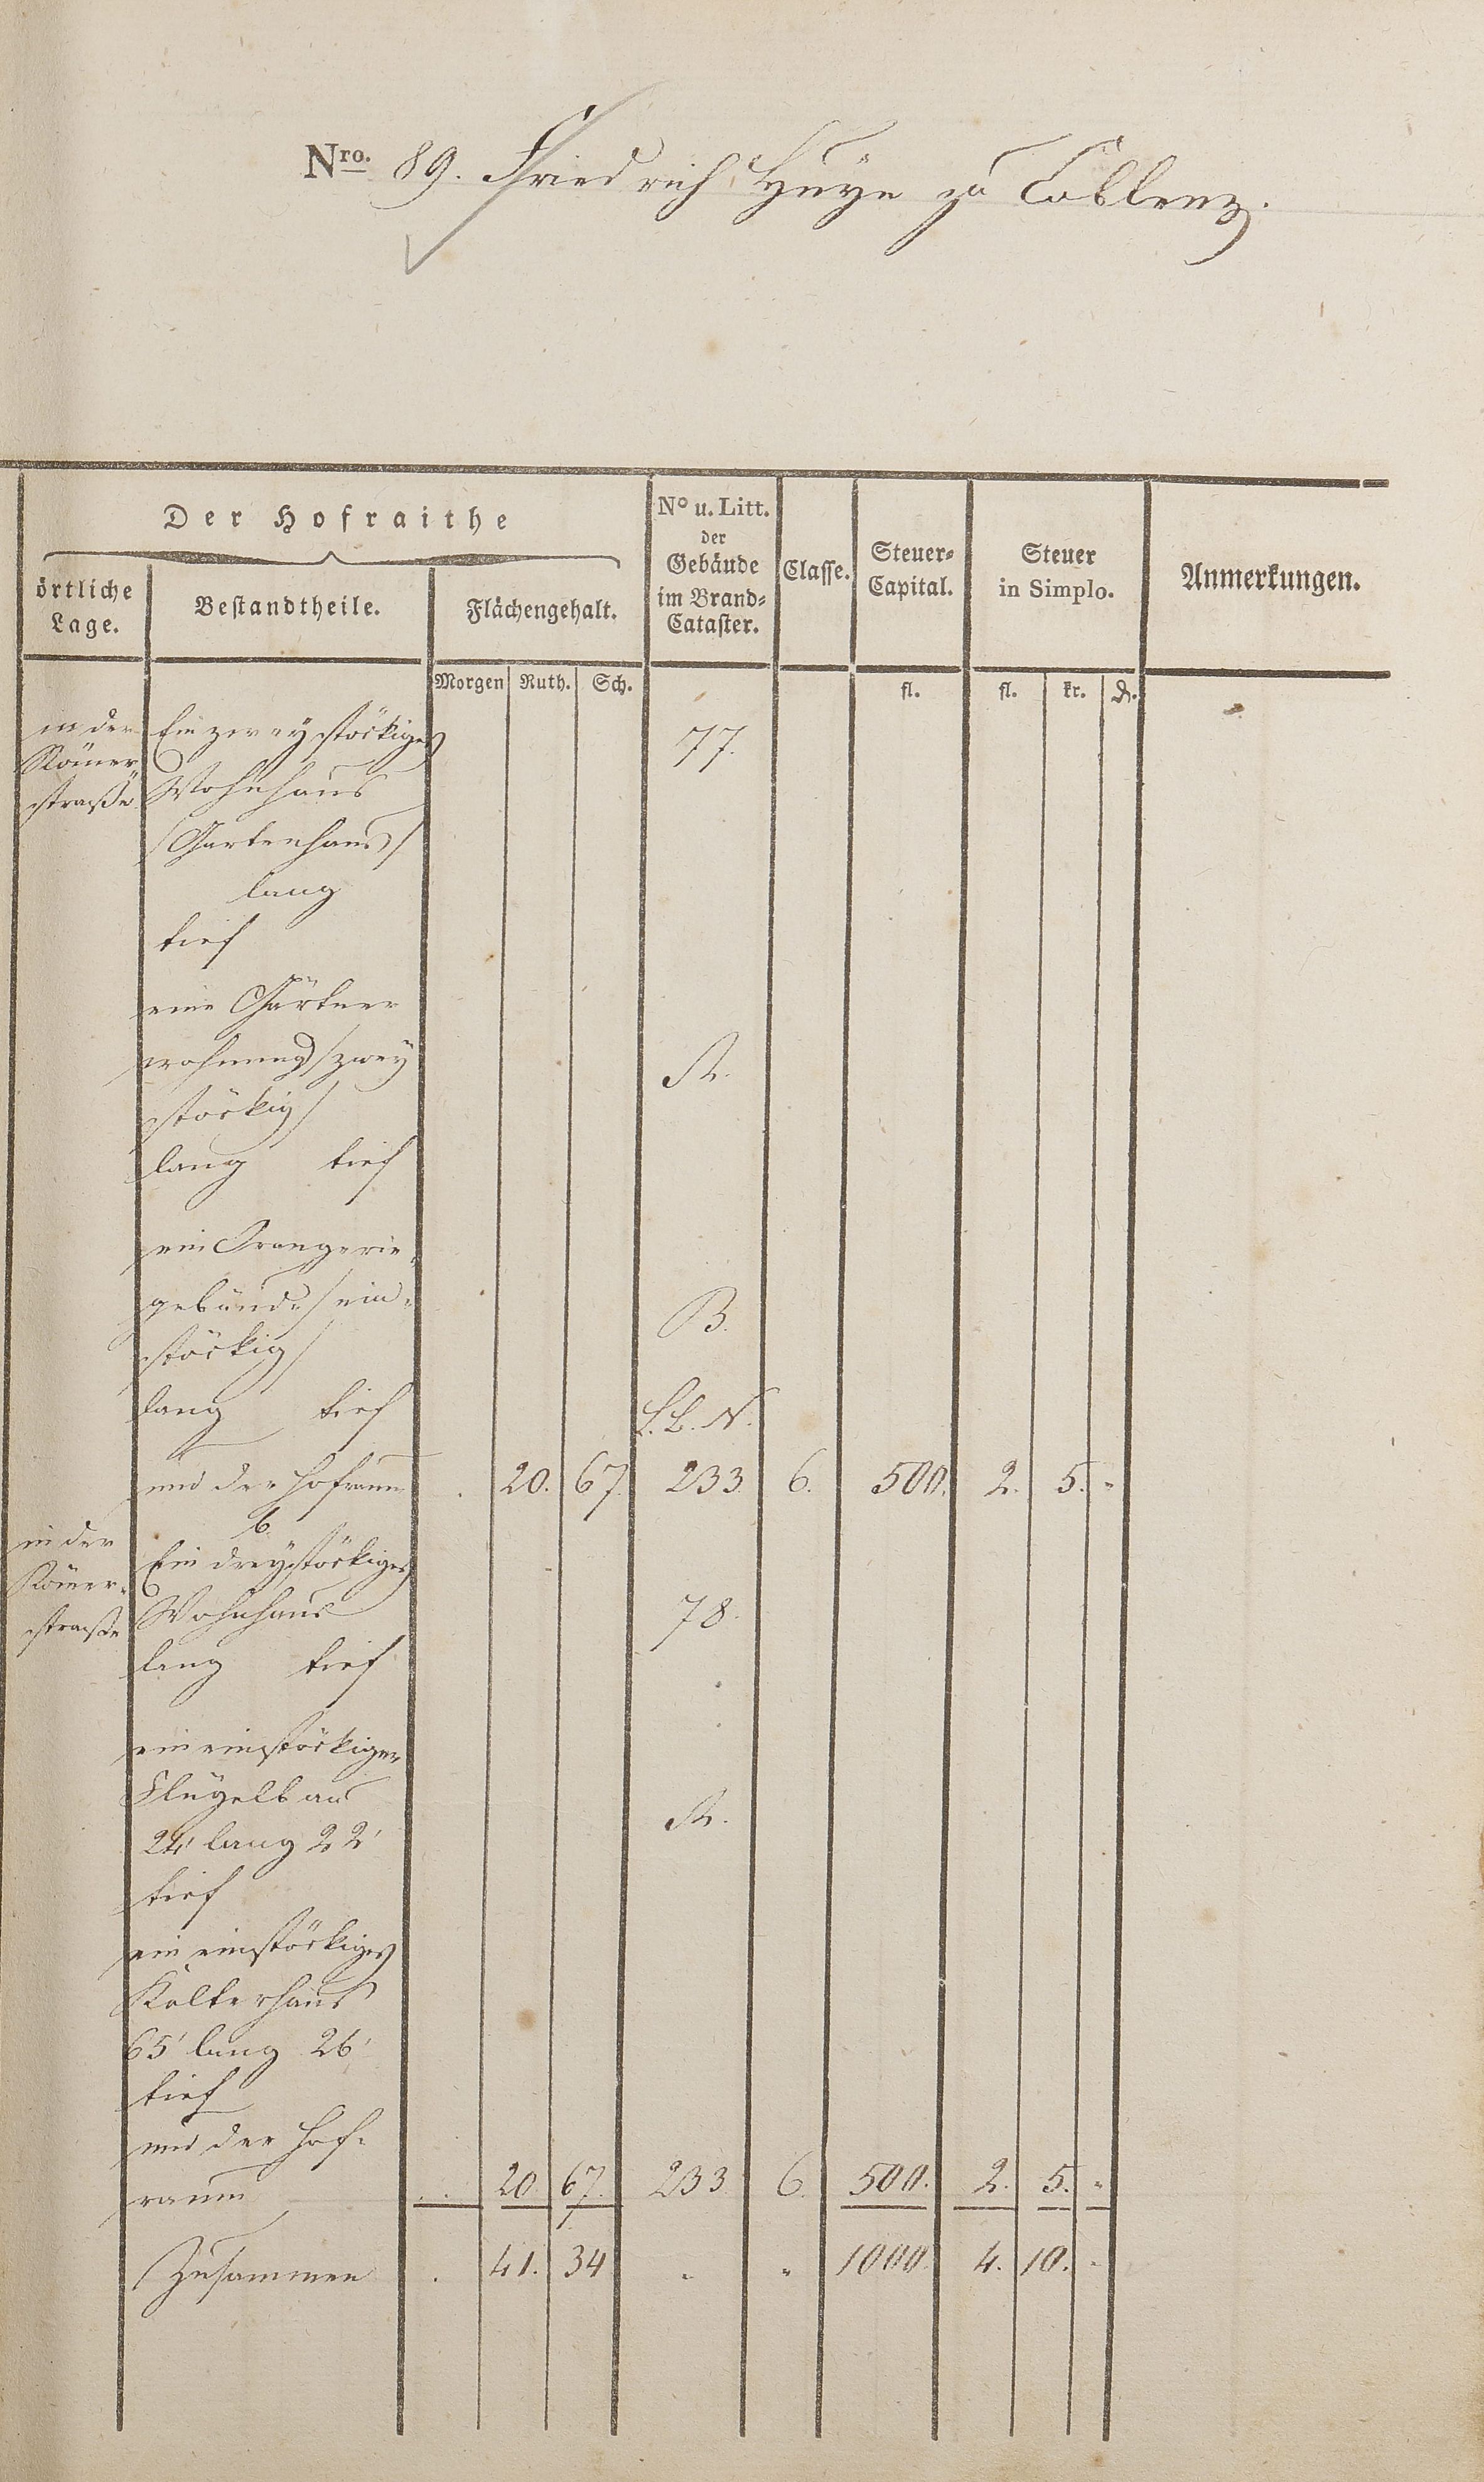 Nro. 89. Friedrich Huÿn zu Coblenz.
Der Hofraithe
örtliche
Lage.
Bestandtheile.
Flächengehalt.
No u. Litt.
der
Gebäude
im Brand-
Cataster.
Classe.
Steuer-
Capital.
Steuer
in Simplo.
Anmerkungen.
Morgen Ruth. Sch. fl. fl. kr. ₰.
in der Ein zweystöckiges 77.
Römer
straße Wohnhaus
/Gartenhaus/
lang
tief
eine Gärtner
wohnung /zwey A.
stöckig/
lang tief
ein Orangerie-
gebäude /ein- B.
stöckig/
lang tief L. B. N.
und der Hofraum . 20. 67. 233. 6. 500. 2. 5. -
b.
in der Ein dreystöckiges
Römer-
straße Wohnhaus 78.
lang tief
ein einstöckiger
Flügelbau A.
24' lang 22'
tief
ein einstöckiges
Kelterhaus
65' lang 26'
tief
und der Hof-
raum . . 20. 67. 233. 6. 500. 2. 5. -
Zusammen . 41. 34 - - 1000. 4. 10. -